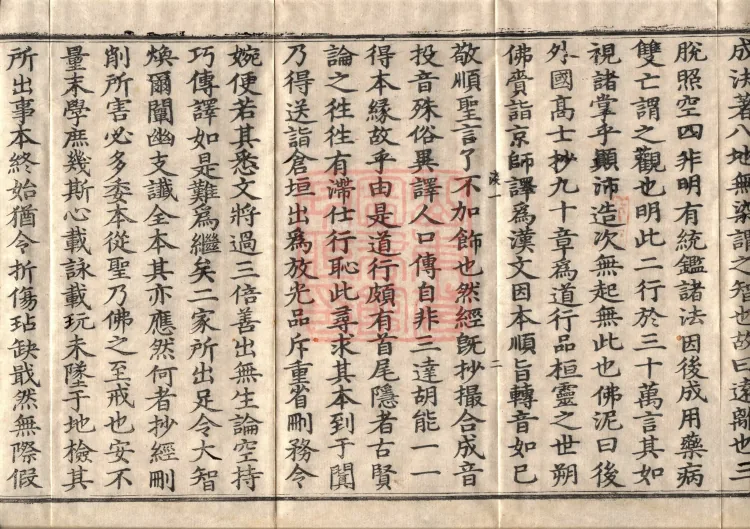 成法著八地無染謂之智也故曰遠離也三
脫照空四非明有統鑑諸法因後成用藥病
雙亡謂之觀也明此二行於三十萬言其如
視諸掌乎顯沛造次無起無此也佛泥曰後
外國高士抄九十章爲道行品桓靈之世朔
佛賷詣京師譯爲漢文因本順旨轉音如已
二
敬順聖言了不加飾也然經旣抄撮合成音
投音殊俗異譯人口傳自非三達胡能一一
得本緣故乎由是道行頗有首尾隱者古賢
論之徃徃有滯仕行恥此尋求其本到于闐
乃得送詣倉垣出爲放光品斥重省刪務令
婉便若其悉文將過三倍善出無生論空持
巧傳譯如是難爲繼矣二家所出足令大智
煥爾闡幽支讖全本其亦應然何者抄經刪
削所害必多委本從聖乃佛之至戒也安不
量末學庶幾斯心載詠載玩未墜于地檢其
所出事本終始猶令折傷玷缺戢然無際假